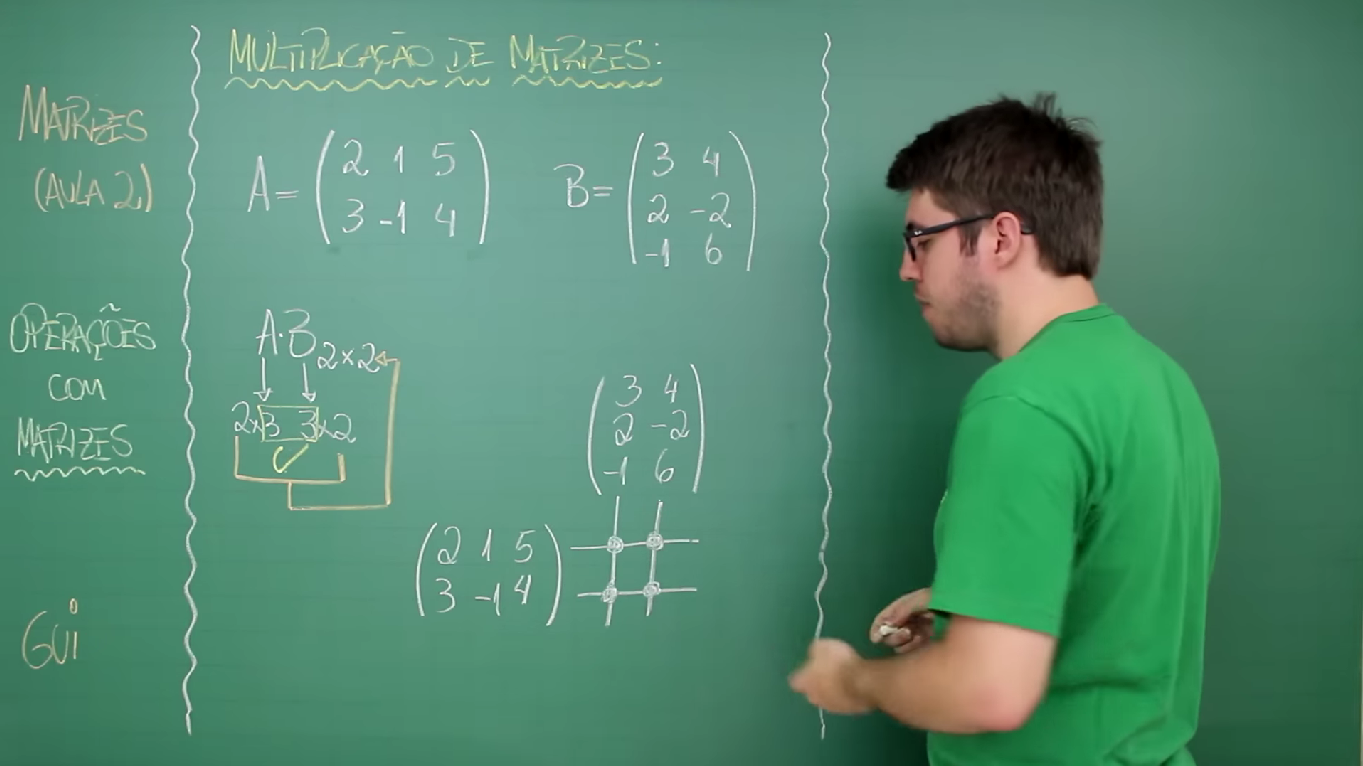 MATRIZES
(AULA 2)
OPERAÇÕES
COM
MATRIZES
GUI
MULTIPLICAÇÃO DE MATRIZES:
A = ( 2 1 5
3 -1 4 )
B = ( 3 4
2 -2
-1 6 )
A·B 2×2
2×3 3×2
( 3 4
2 -2
-1 6 )
( 2 1 5
3 -1 4 )